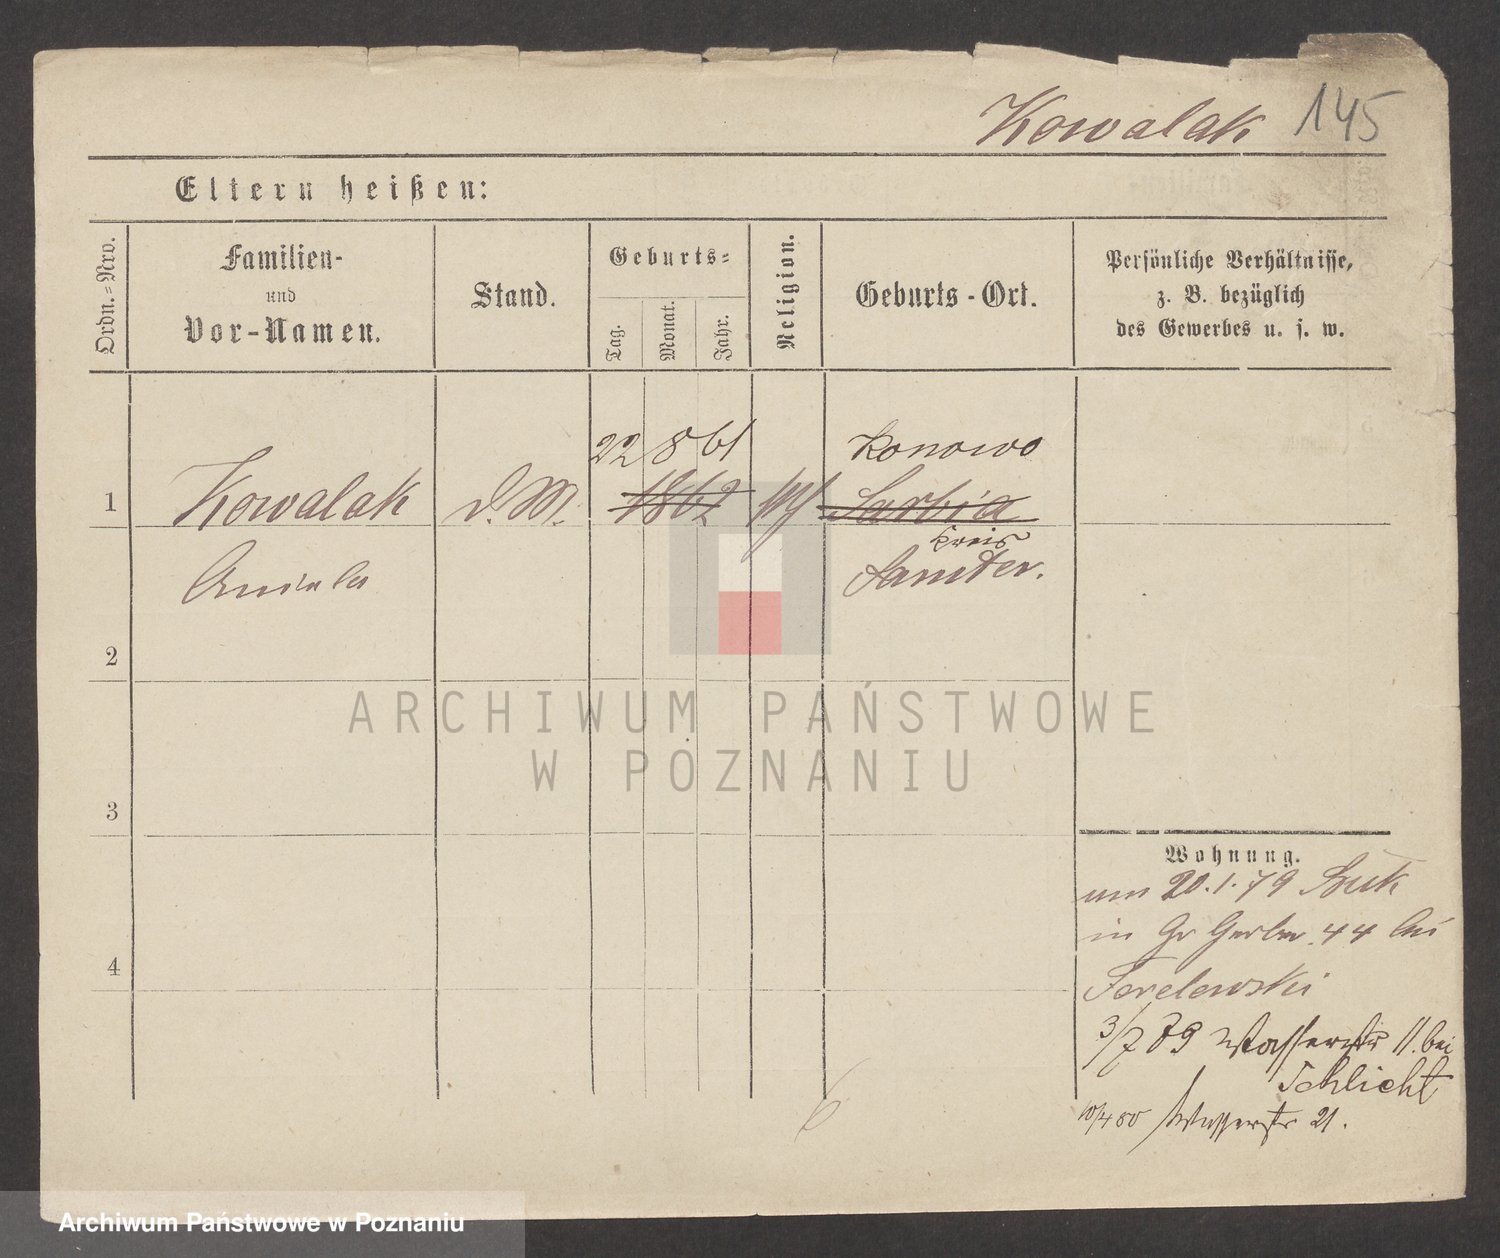 Kowalak 145
Eltern heißen:
Ordn.=Nro.
Familien-
und
Vor-Namen.
Stand.
Geburts=
Tag.
Monat.
Jahr.
Religion.
Geburts-Ort.
Persönliche Verhältnisse,
z. B. bezüglich
des Gewerbes u. s. w.
22 8 61
Konowo
1 Kowalak d. M. 1862 Sarbia
Kreis
Aniela Samter.
2
3
4
Wohnung.
am 20.1.79 Buk
in Gr Gerber 44 bei
3/7 79 Wasserstr 11. bei
Schlicht
10/4 80 Wasserstr 21.
ARCHIWUM PAŃSTWOWE
W POZNANIU
Archiwum Państwowe w Poznaniu